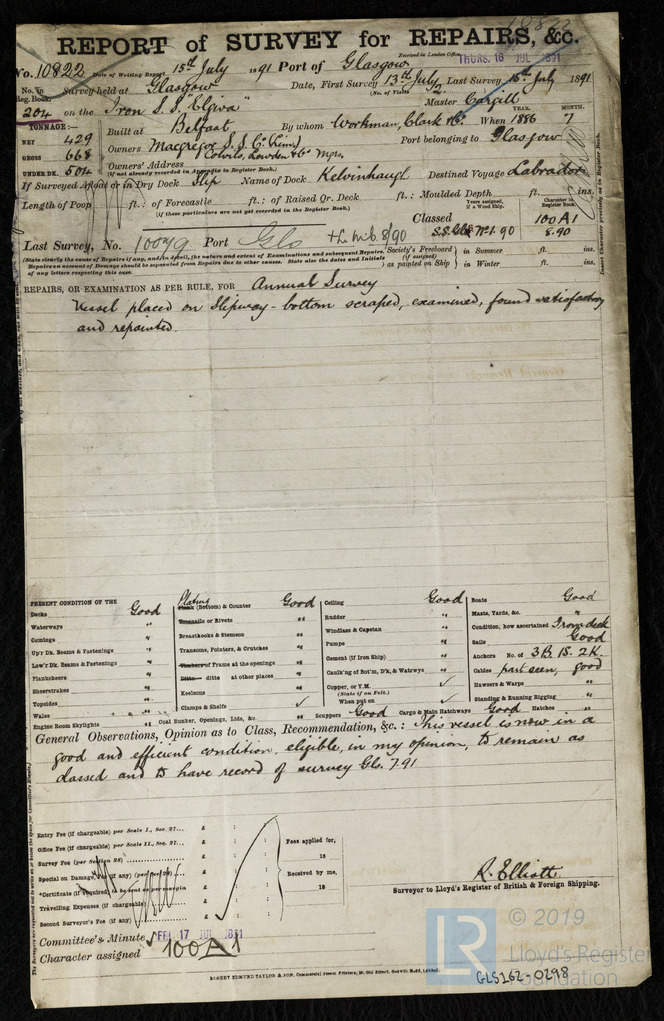 REPORT of SURVEY for REPAIRS, &c.
Received in London Office THURS. 16 JUL 1891
No. 10822 Date of Writing Report 15th July 1891 Port of Glasgow
No. in Reg. Book. Survey held at Glasgow Date, First Survey 13th July Last Survey 15th July 1891
(No. of Visits 2.
204 on the Iron S.S. "Elgiva" Master Cargill
TONNAGE:— Built at Belfast By whom Workman, Clark &Co. When 1886 7
YEAR. MONTH.
NET 429
GROSS 668 Owners Macgregor S.S. Co. (Lim) Port belonging to Glasgow
UNDER DK. 504 Owners' Address
(if not already recorded in Appendix to Register Book.)
If Surveyed Afloat or in Dry Dock Slip Name of Dock Kelvinhaugh Destined Voyage Labrador
Length of Poop ft.: of Forecastle ft.: of Raised Qr. Deck ft.: Moulded Depth ft. ins.
(if these particulars are not yet recorded in the Register Book.)
Years assigned, if a Wood Ship. Character in Register Book.
Classed 100A1
Last Survey, No. 10079 Port Glo 8/90
S.S. Gls No 1. 90 8.90
(State clearly the cause of Repairs if any, and in detail, the nature and extent of Examinations and subsequent Repairs.
Repairs on account of Damage should be separated from Repairs due to other causes. State also the dates and Initials
of any letters respecting this case.
Society's Freeboard (if assigned) as painted on Ship } in Summer ft. ins.
in Winter ft. ins.
REPAIRS, OR EXAMINATION AS PER RULE, FOR Annual Survey
Vessel placed on Slipway - bottom scraped, examined, found satisfactory
and repainted.
PRESENT CONDITION OF THE
Decks Good
Waterways "
Comings "
Up'r Dk. Beams & Fastenings "
Low'r Dk. Beams & Fastenings "
Planksheers "
Sheerstrakes "
Topsides "
Wales "
Engine Room Skylights "
Plating
Plank (Bottom) & Counter Good
Treenails or Rivets "
Breasthooks & Stemson "
Transoms, Pointers, & Crutches "
Timbers of Frame at the openings "
Ditto ditto at other places "
Keelsons "
Clamps & Shelfs ✓
Coal Bunker, Openings, Lids, &c. "
Ceiling Good
Rudder "
Windlass & Capstan "
Pumps "
Cement (if Iron Ship) "
Caulk'g of Bot'm, D'k, & Watrwys "
Copper, or Y.M. ✓
(State if on Felt.)
When put on ✓
Scuppers Good Cargo & Main Hatchways Good Hatches "
Boats Good
Masts, Yards, &c. "
Condition, how ascertained From deck
Sails Good
Anchors No. of 3B. 1S. 2K.
Cables part seen, good
Hawsers & Warps "
Standing & Running Rigging "
General Observations, Opinion as to Class, Recommendation, &c.: This vessel is now in a
good and efficient condition, eligible, in my opinion, to remain as
classed and to have record of survey Gls. 7.91
Entry Fee (if chargeable) per Scale I., Sec. 27... £ : :
Office Fee (if chargeable) per Scale II., Sec. 27... £ : :
Survey Fee (per Section 28) £ : :
Special on Damage Fee (if any) (per Sec. 28) £ : :
*Certificate (if required) to be sent as per margin
Travelling Expenses (if chargeable) £ : :
Second Surveyor's Fee (if any) £ : :
Fees applied for,
18
Received by me,
18
R. Elliott
Surveyor to Lloyd's Register of British & Foreign Shipping.
Committee's Minute FRI 17 JUL 1891
Character assigned 100A1
LR
© 2019
Lloyd's Register
Foundation
GLS162-0298